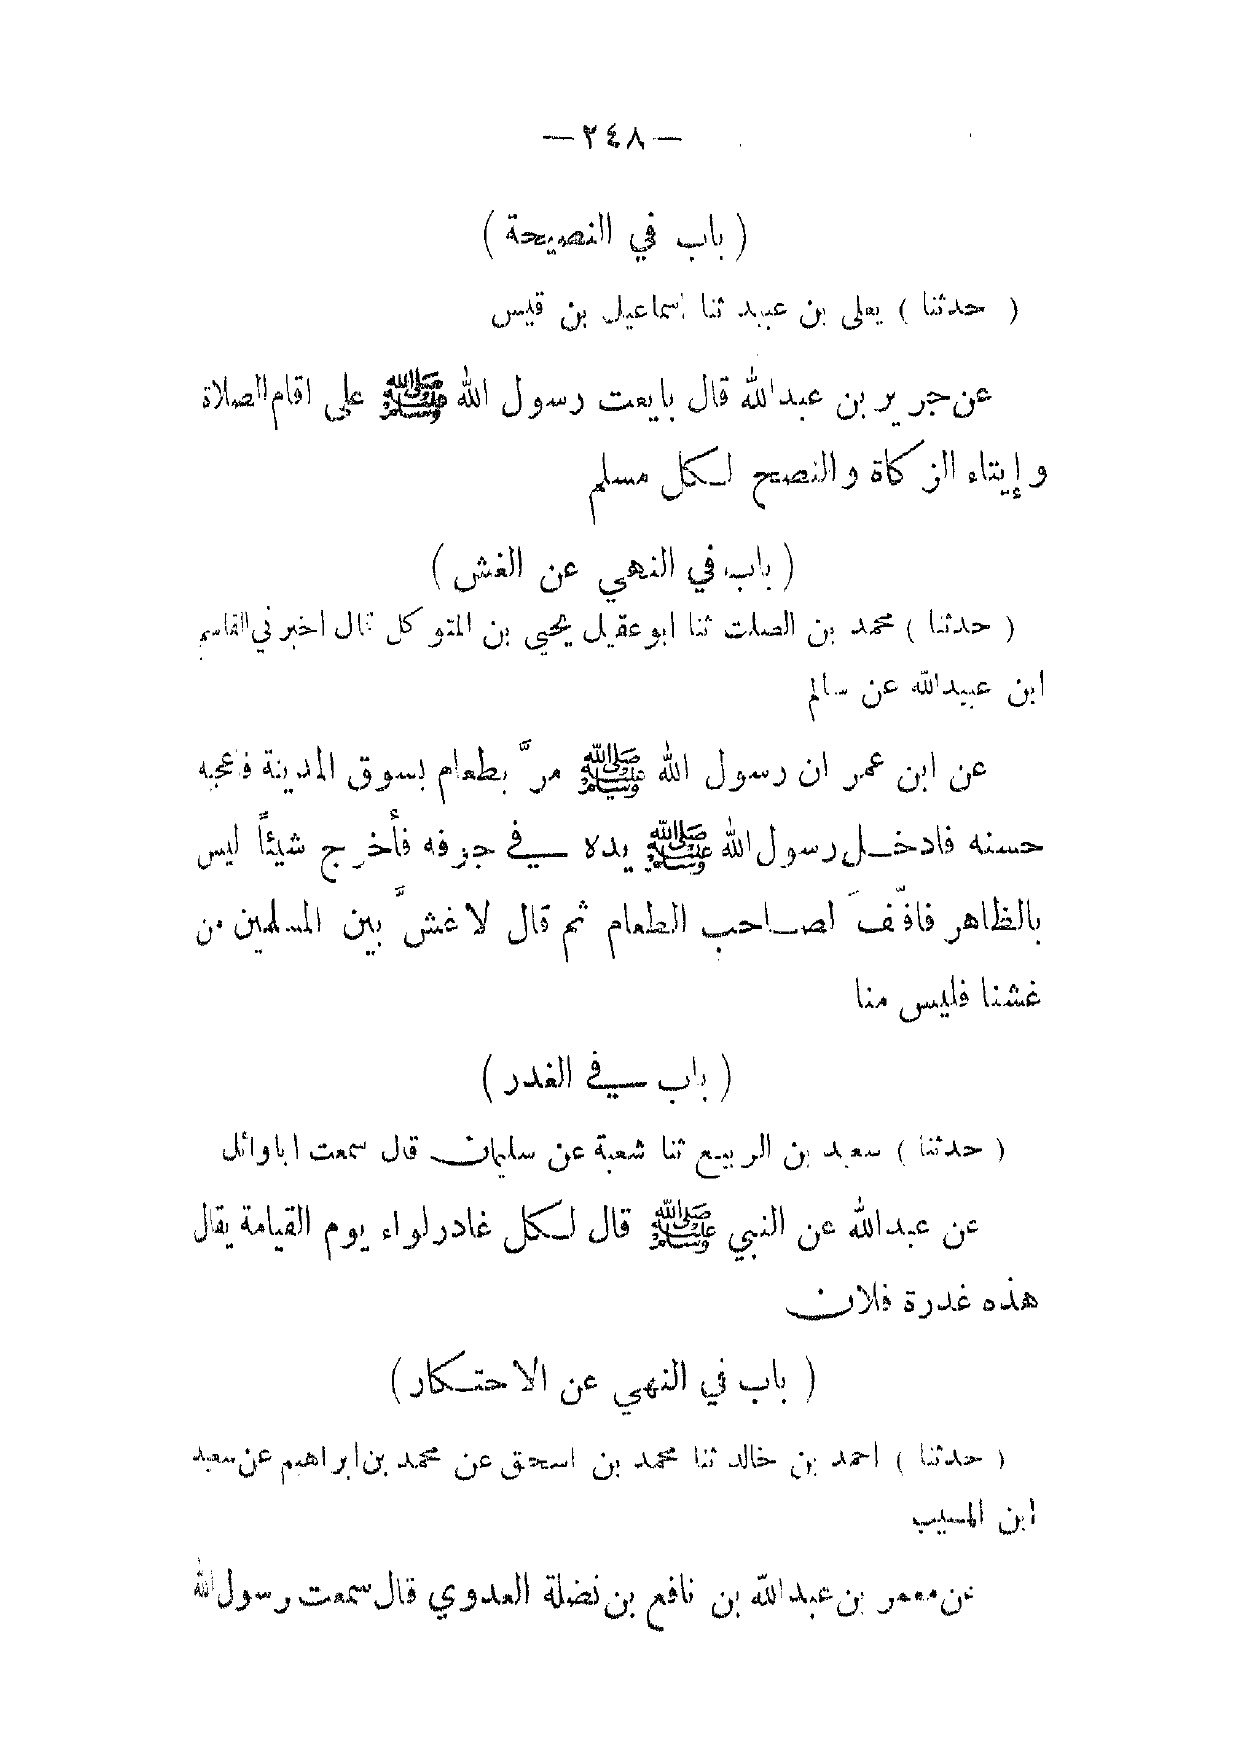 — ٢٤٨ —
( باب في النصيحة )
( حدثنا ) يعلى بن عبيد ثنا إسماعيل بن قيس
عن جرير بن عبدالله قال بايعت رسول الله ﷺ على اقام الصلاة
وإيتاء الزكاة والنصح لكل مسلم
( باب في النهي عن الغش )
( حدثنا ) محمد بن الصلت ثنا ابوعقيل يحيى بن المتوكل قال اخبرني القاسم
ابن عبيدالله عن سالم
عن ابن عمر ان رسول الله ﷺ مرَّ بطعام بسوق المدينة فاعجبه
حسنه فادخل رسول الله ﷺ يده في جوفه فأخرج شيئاً ليس
بالظاهر فافّفَ لصاحب الطعام ثم قال لاغشَّ بين المسلمين من
غشنا فليس منا
( باب في الغدر )
( حدثنا ) سعيد بن الربيع ثنا شعبة عن سليمان قال سمعت اباوائل
عن عبدالله عن النبي ﷺ قال لكل غادر لواء يوم القيامة يقال
هذه غدرة فلان
( باب في النهي عن الاحتكار )
( حدثنا ) احمد بن خالد ثنا محمد بن اسحق عن محمد بن ابراهيم عن سعيد
ابن المسيب
عن معمر بن عبدالله بن نافع بن نضلة العدوي قال سمعت رسول الله